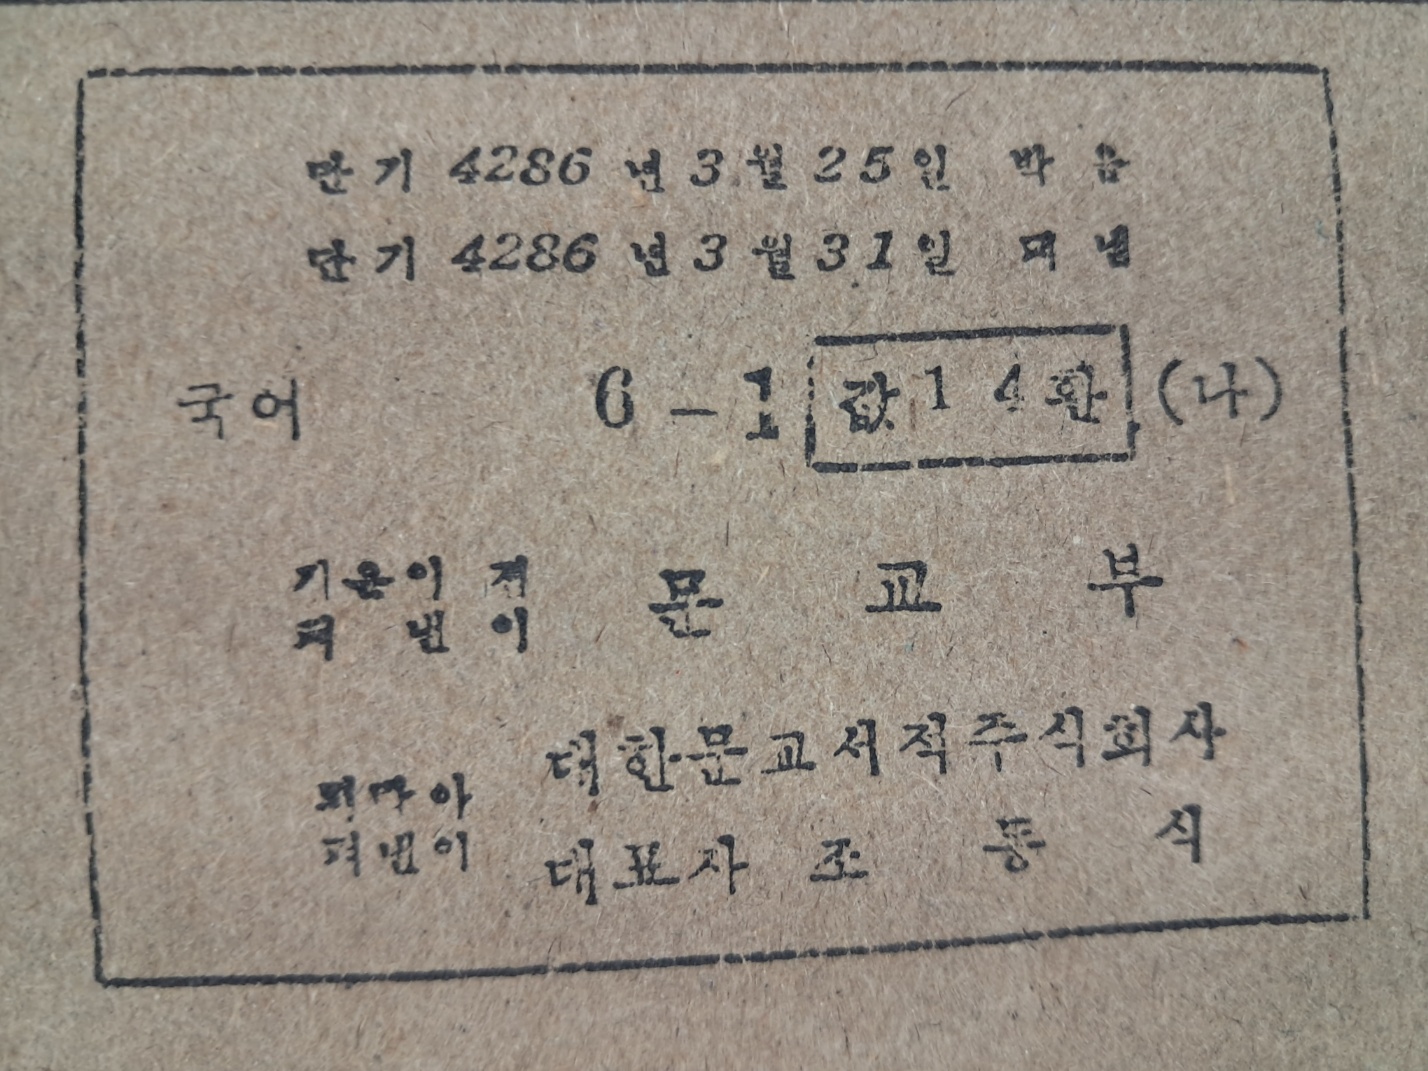 단기 4286 년 3 월 25 일 박음
단기 4286 년 3 월 31 일 펴냄
국어 6－1 값 14환 (나)
지은이 겸 문교부
펴낸이
대한문교서적주식회사
펴낸이 대표자 조동식